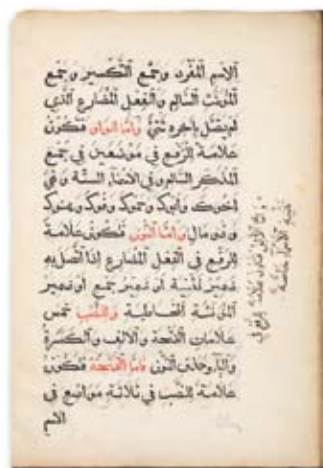 الاسم المفرد وجمع التكسير وجمع
المؤنث السالم والفعل المضارع الذي
لم يتصل باخره شيٌ واما الواو فتكون
علامة للرفع في موضعين في جمع
المذكر السالم وفي الاسماء الستة وهي
اخوك وابوك وحموك وفوك وهنوك
وذو مال واما النون فتكون علامة
للرفع في الفعل المضارع اذا اتصل به
ضمير تثنية او ضمير جمع او ضمير
المؤنثة المخاطبة وللنصب خمس
علامات الفتحة والالف والكسرة
واليا وحذف النون فاما الفتحة فتكون
علامة للنصب في ثلاثة مواضع في
الاسم
الالف فتكون علامة للرفع في
تثنية الاسماء خاصة